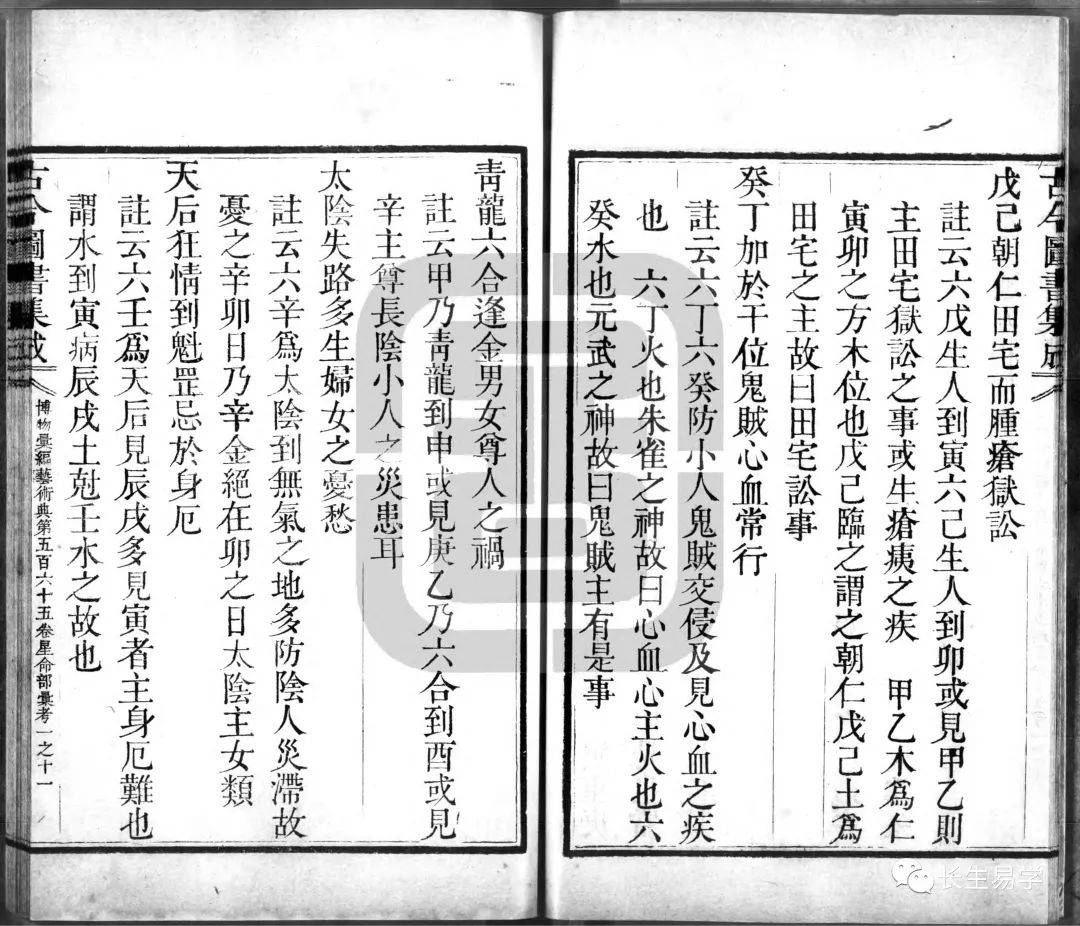 古今圖書集成
戊己朝仁田宅而腫瘡獄訟
註云六戊生人到寅六己生人到卯或見甲乙則
主田宅獄訟之事或生瘡痍之疾　甲乙木爲仁
寅卯之方木位也戊己臨之謂之朝仁戊己土爲
田宅之主故曰田宅訟事
癸丁加於干位鬼賊心血常行
註云六丁六癸防小人鬼賊交侵及見心血之疾
也　六丁火也朱雀之神故曰心血心主火也六
癸水也元武之神故曰鬼賊主有是事
青龍六合逢金男女尊人之禍
註云甲乃青龍到申或見庚乙乃六合到酉或見
辛主尊長陰小人之災患耳
太陰失路多生婦女之憂愁
註云六辛爲太陰到無氣之地多防陰人災滯故
憂之辛卯日乃辛金絕在卯之日太陰主女類
天后狂情到魁罡忌於身厄
註云六壬爲天后見辰戌多見寅者主身厄難也
謂水到寅病辰戌土尅壬水之故也
古今圖書集成
博物彙編藝術典第五百六十五卷星命部彙考一之十一
长生易学